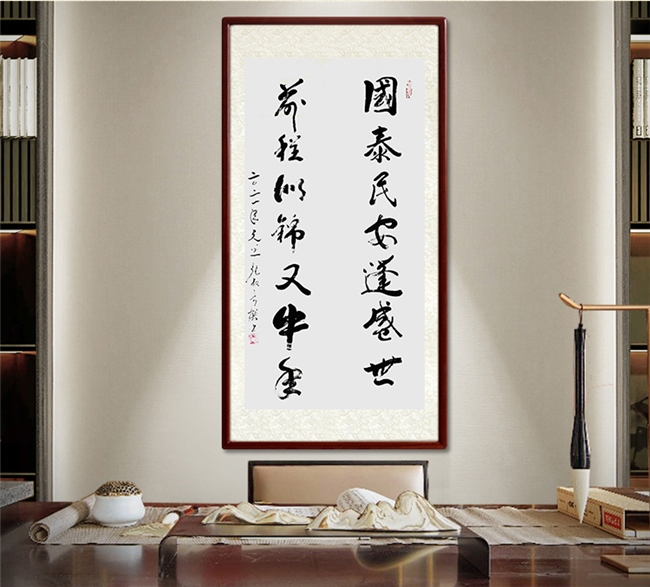 國泰民安逢盛世
前程似錦又牛年
二〇二一年元旦